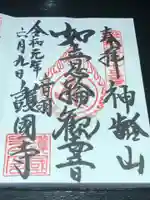 奉拝
神齢山
如意輪観世音
令和元年
六月九日
音羽
護国寺